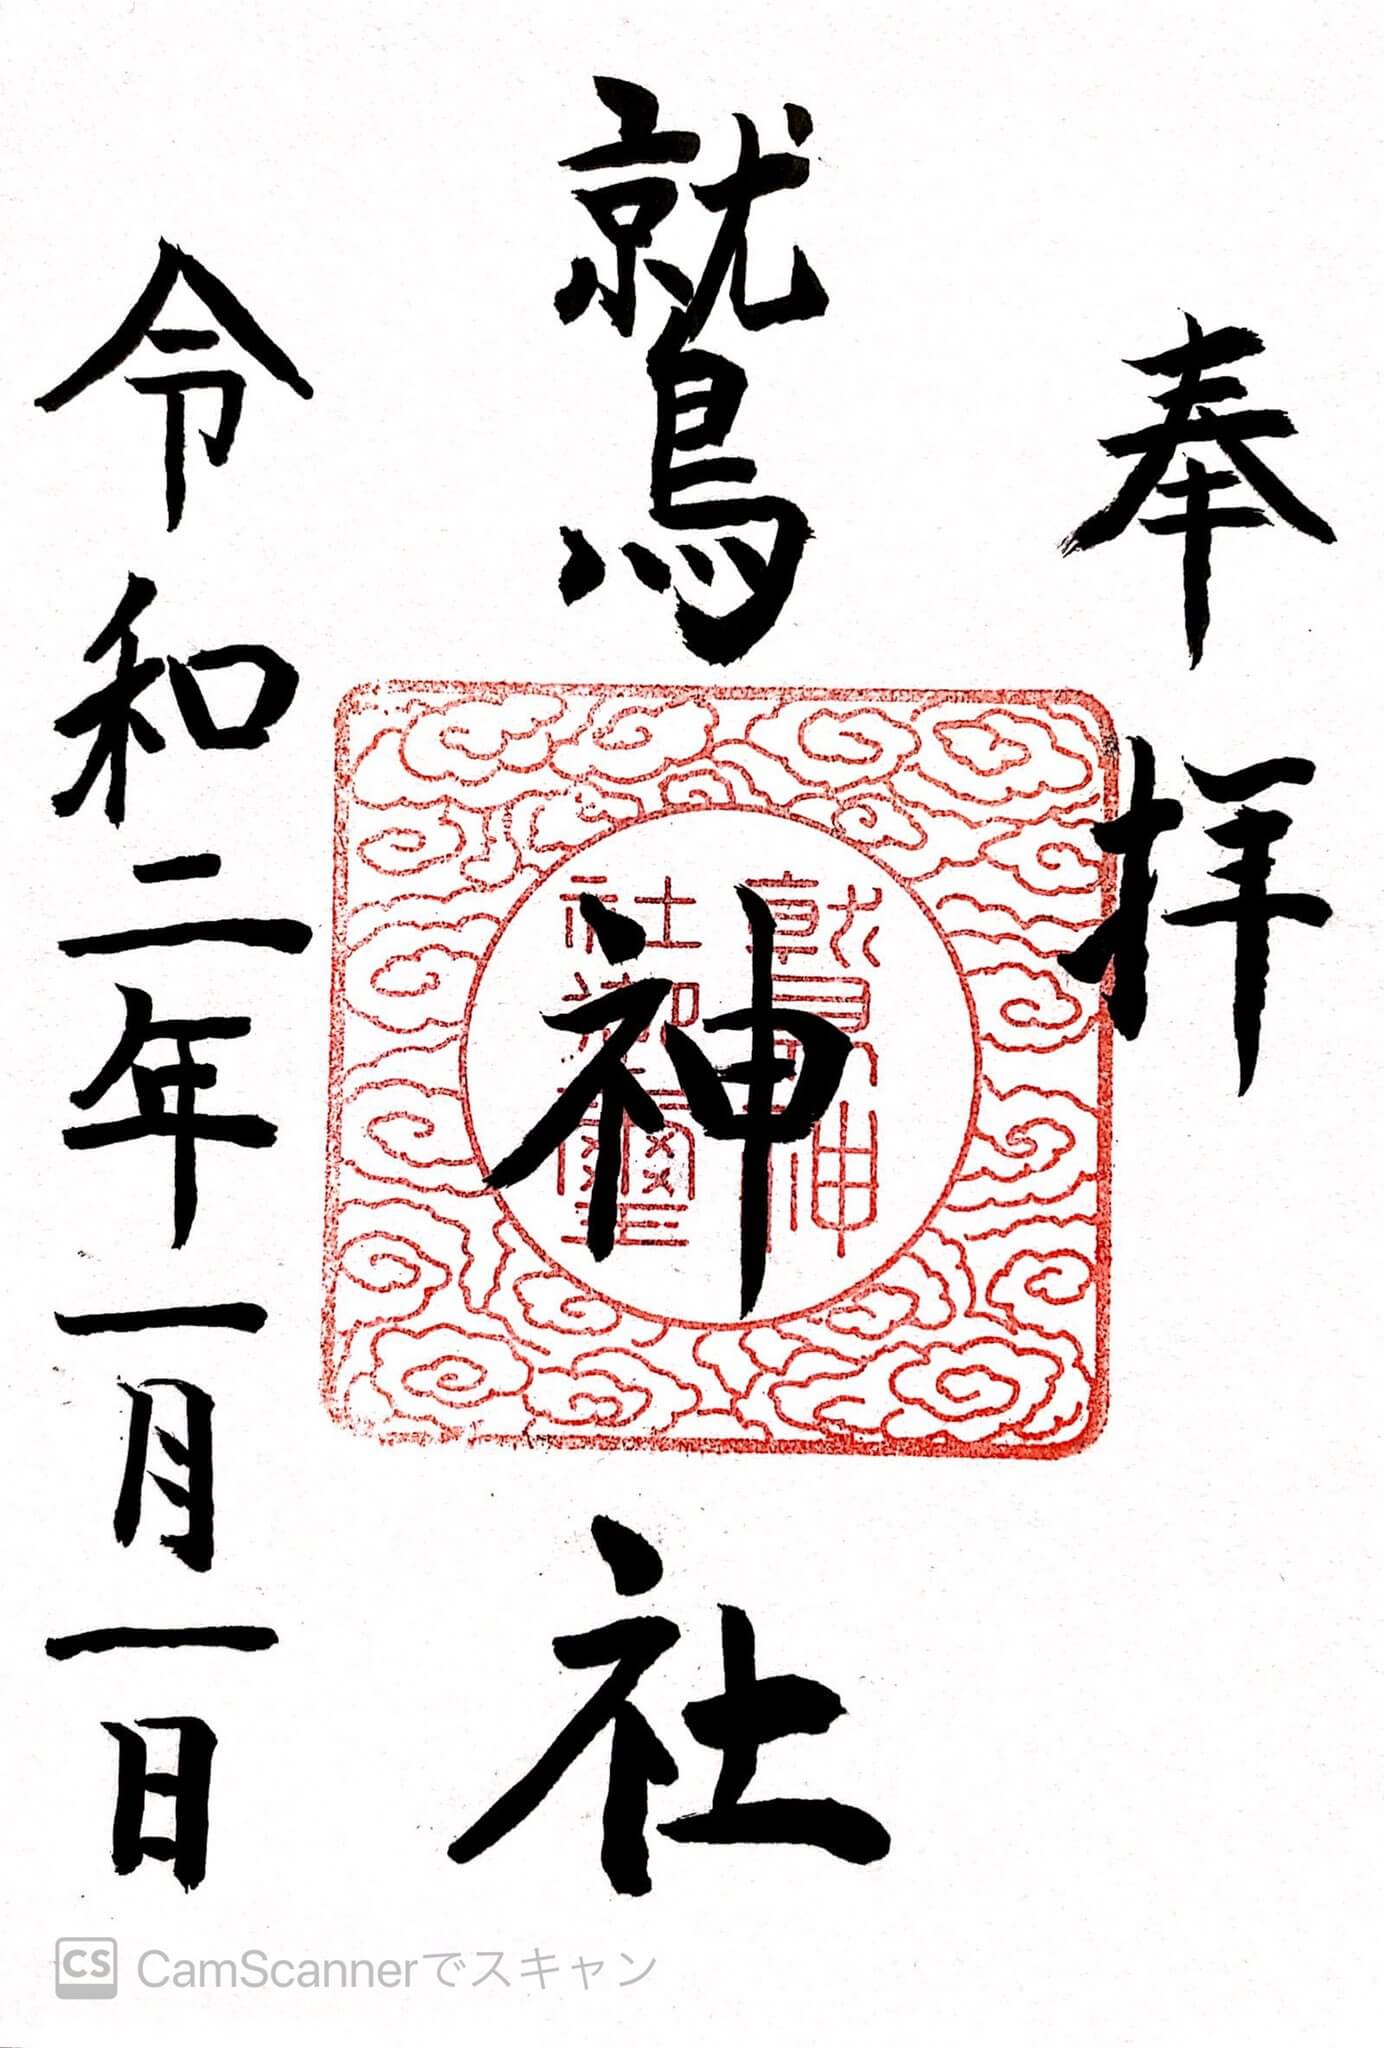 奉拝
鷲神社
令和二年一月一日
鷲神
社御璽
CamScannerでスキャン